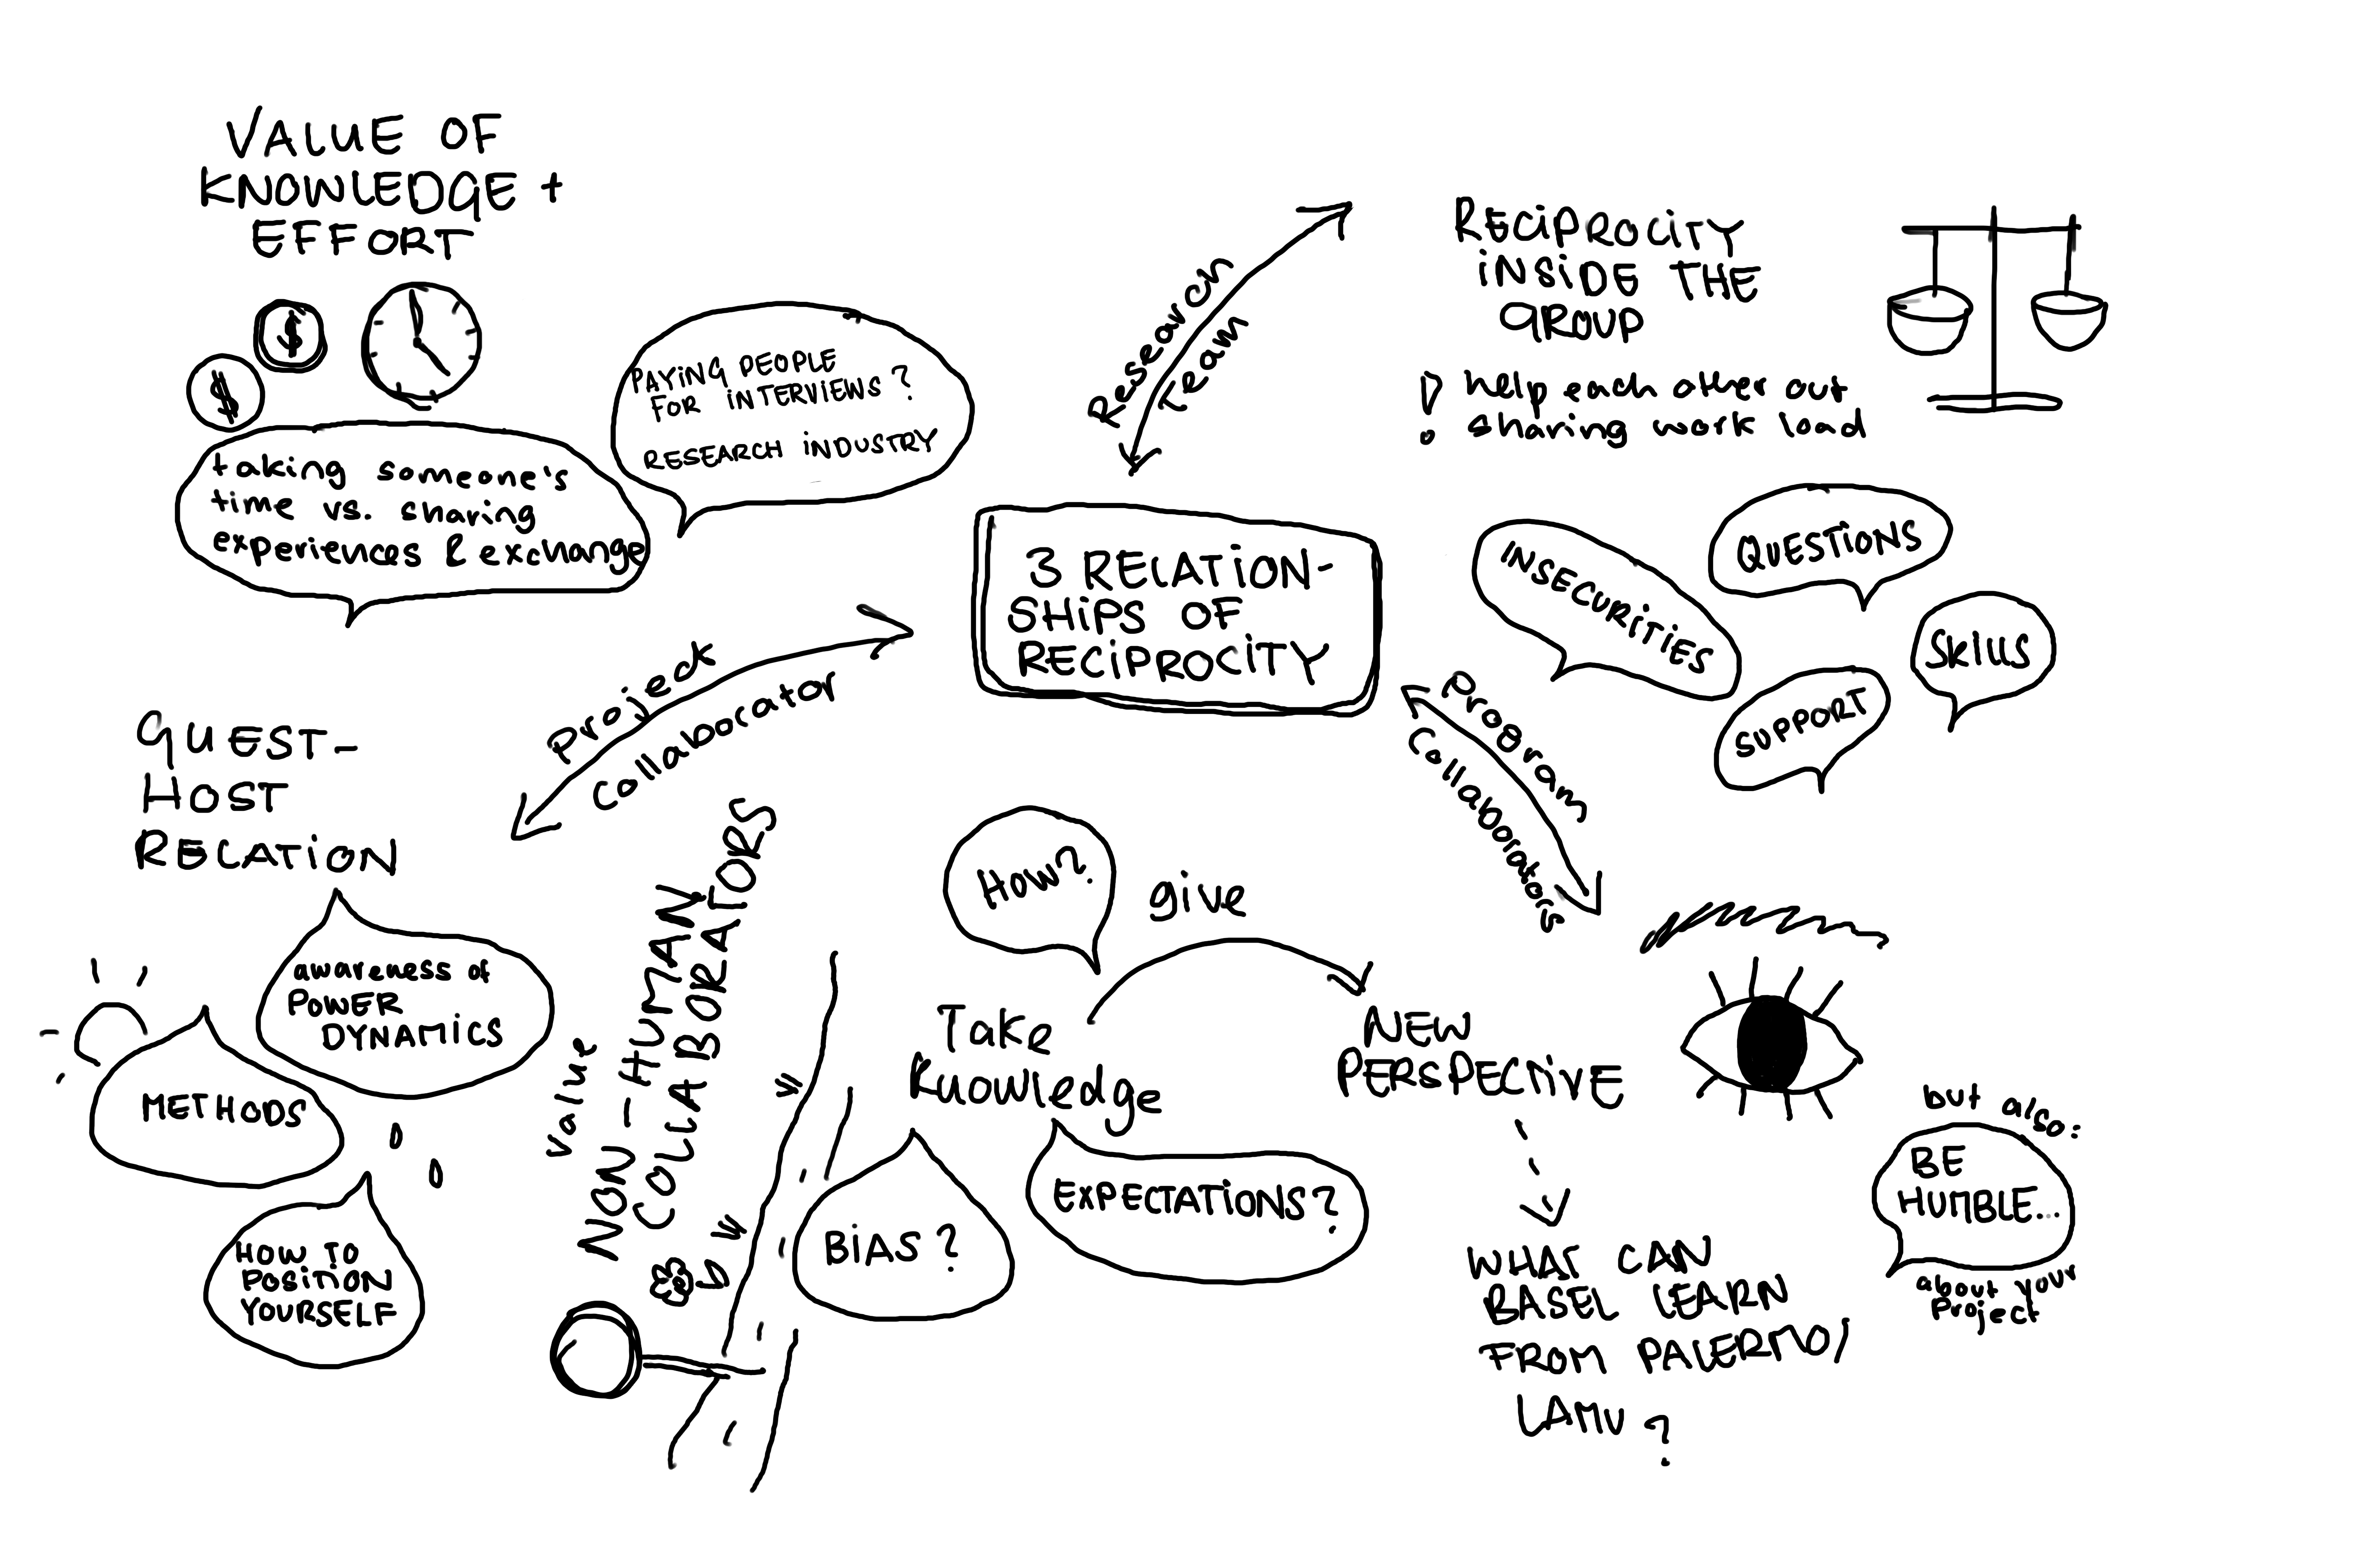 VALUE OF
KNOWLEDGE +
EFFORT
$
$
taking someone's
time vs. sharing
experiences & exchange
PAYING PEOPLE
FOR INTERVIEWS?
RESEARCH INDUSTRY
Research
Team
RECIPROCITY
INSIDE THE
GROUP
! help each other out
sharing work load
3 RELATION-
SHIPS OF
RECIPROCITY
INSECURITIES
QUESTIONS
SKILLS
SUPPORT
Project
Collaborator
Program
Collaborators
GUEST-
HOST
RELATION
awareness of
POWER
DYNAMICS
METHODS
HOW TO
POSITION
YOURSELF
value
NON-HUMAN
COLLABORATORS
HOW?
give
Take
Knowledge
NEW
PERSPECTIVE
BIAS?
EXPECTATIONS?
but also:
BE
HUMBLE...
about your
Project
WHAT CAN
BASEL LEARN
FROM PALERMO/
LAMU?